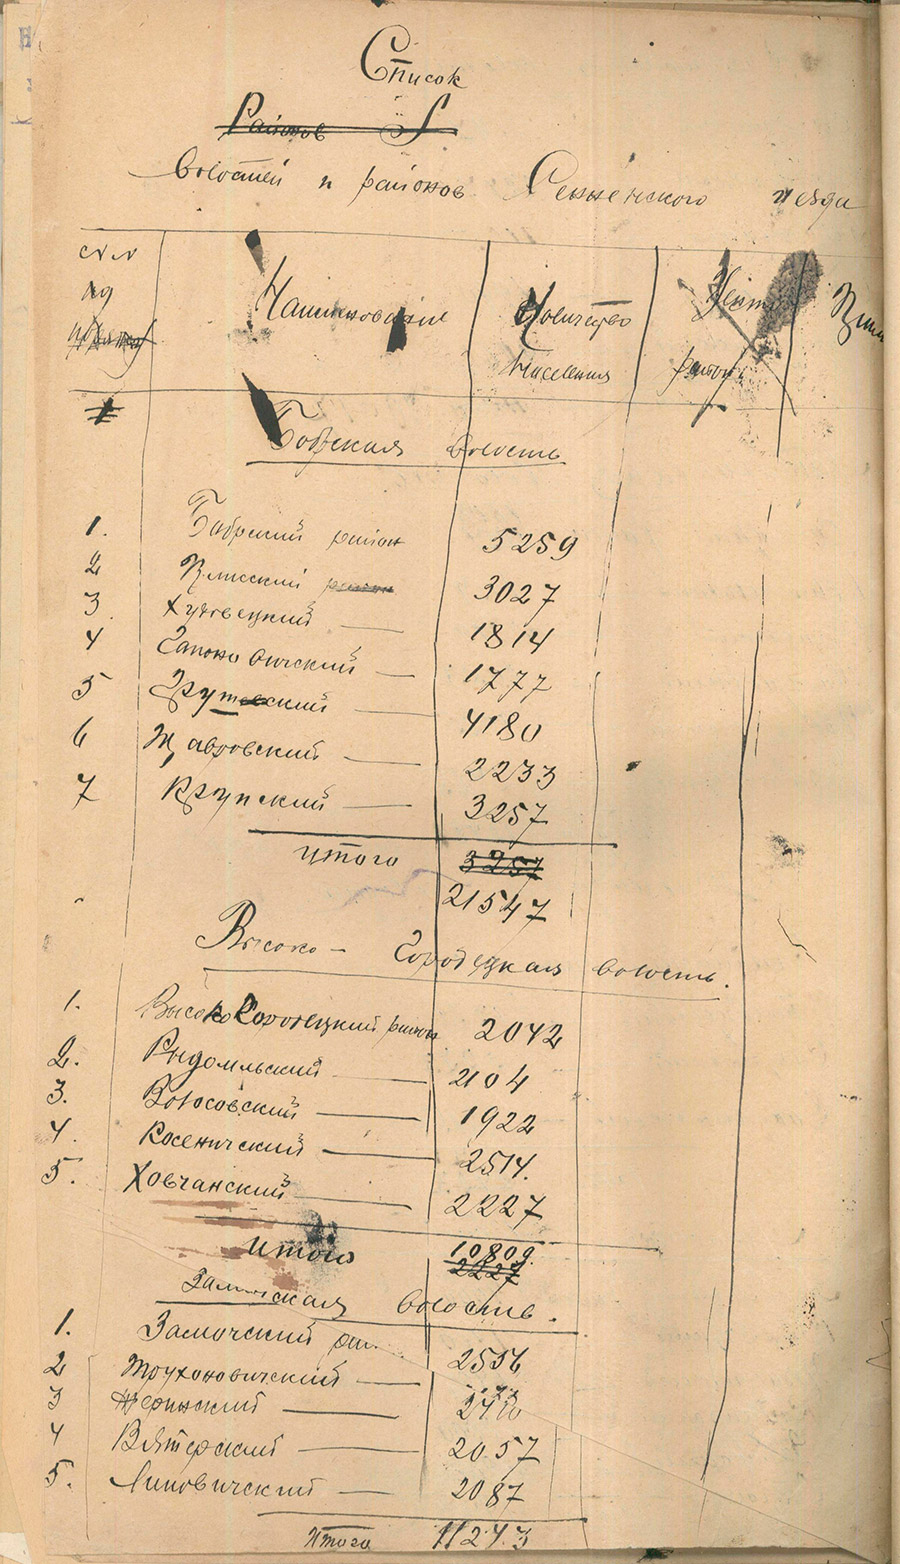 Список
Районов
волостей и районов Сенненского уезда
Наименование Количество
Населения района
Бобрская волость
1. Бобрский район 5259
2 Клисский район 3027
3 Худовецкий — 1814
4 1777
5 4180
6 2233
7 Крупский — 3257
итого 3257
21547
Высоко-Городецкая волость.
1. Высоко Городецкий район 2042
2. Рыдомльский — 2104
3. Волосовский — 1922
4. Косеничский — 2514.
5. Ховчанский — 2227
Итого 10809.
2227
волость.
1. Замочский 2556
2 Трухоновичский —
3
4 Вятерский — 2057
5. Липовичский — 2087
Итого 11273